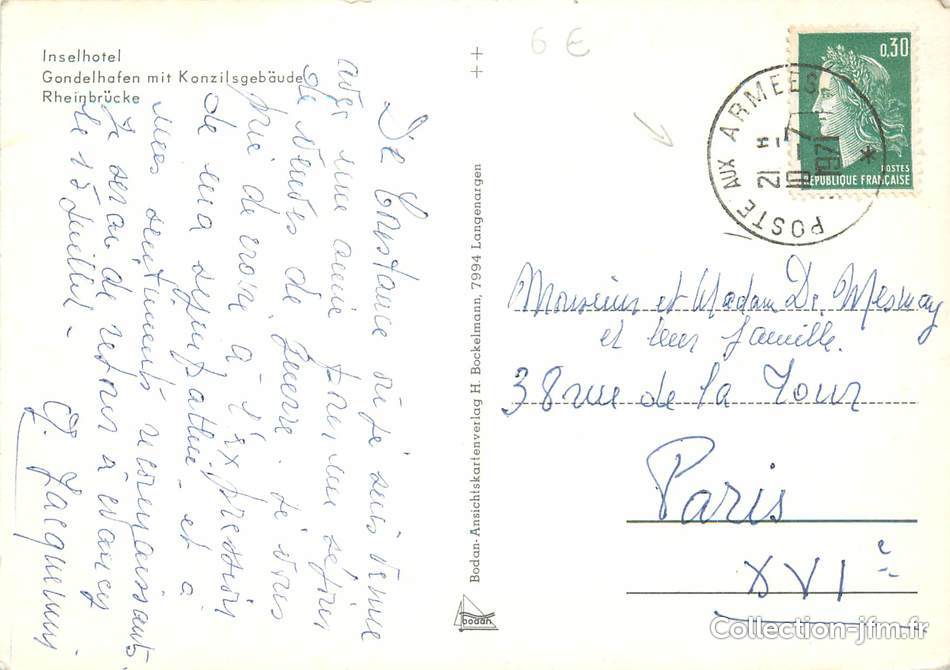 Inselhotel
Gondelhafen mit Konzilsgebäude
Rheinbrücke
De Constance où je suis venue
avec une amie pour un séjour
de veuves de guerre. Je vous
prie de croire à l'expression
de ma sympathie et à
mes sentiments reconnaissants.
Je serai de retour à Nancy
le 15 Juillet.
Jacquemin
Bodan-Ansichtskartenverlag H. Bockelmann, 7994 Langenargen
bodan
6 €
POSTE AUX ARMEES
21 H
10 - 7
1971
0,30
POSTES
RÉPUBLIQUE FRANÇAISE
Monsieur et Madame De Mesmay
et leur famille.
38 rue de la Tour
Paris
XVIe
Collection-jfm.fr